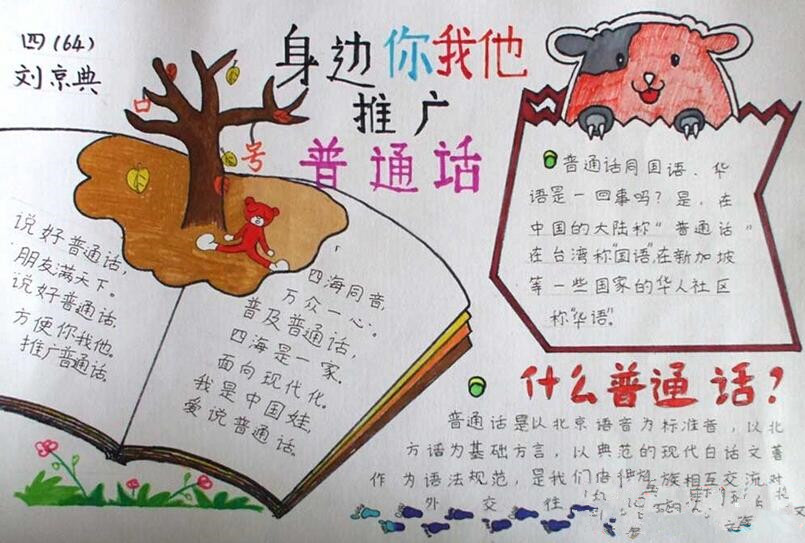 四(64)
刘京典
身边你我他
推广
普通话
口号
说好普通话,
朋友满天下。
说好普通话,
方便你我他。
推广普通话。
四海同音,
万众一心。
普及普通话,
四海是一家。
面向现代化。
我是中国娃,
爱说普通话。
普通话同国语、华
语是一回事吗？是，在
中国的大陆称“普通话”
在台湾称“国语”,在新加坡
等一些国家的华人社区
称“华语”。
什么普通话？
普通话是以北京语音为标准音，以北
方话为基础方言，以典范的现代白话文著
作为语法规范，是我们 族相互交流对
外交往